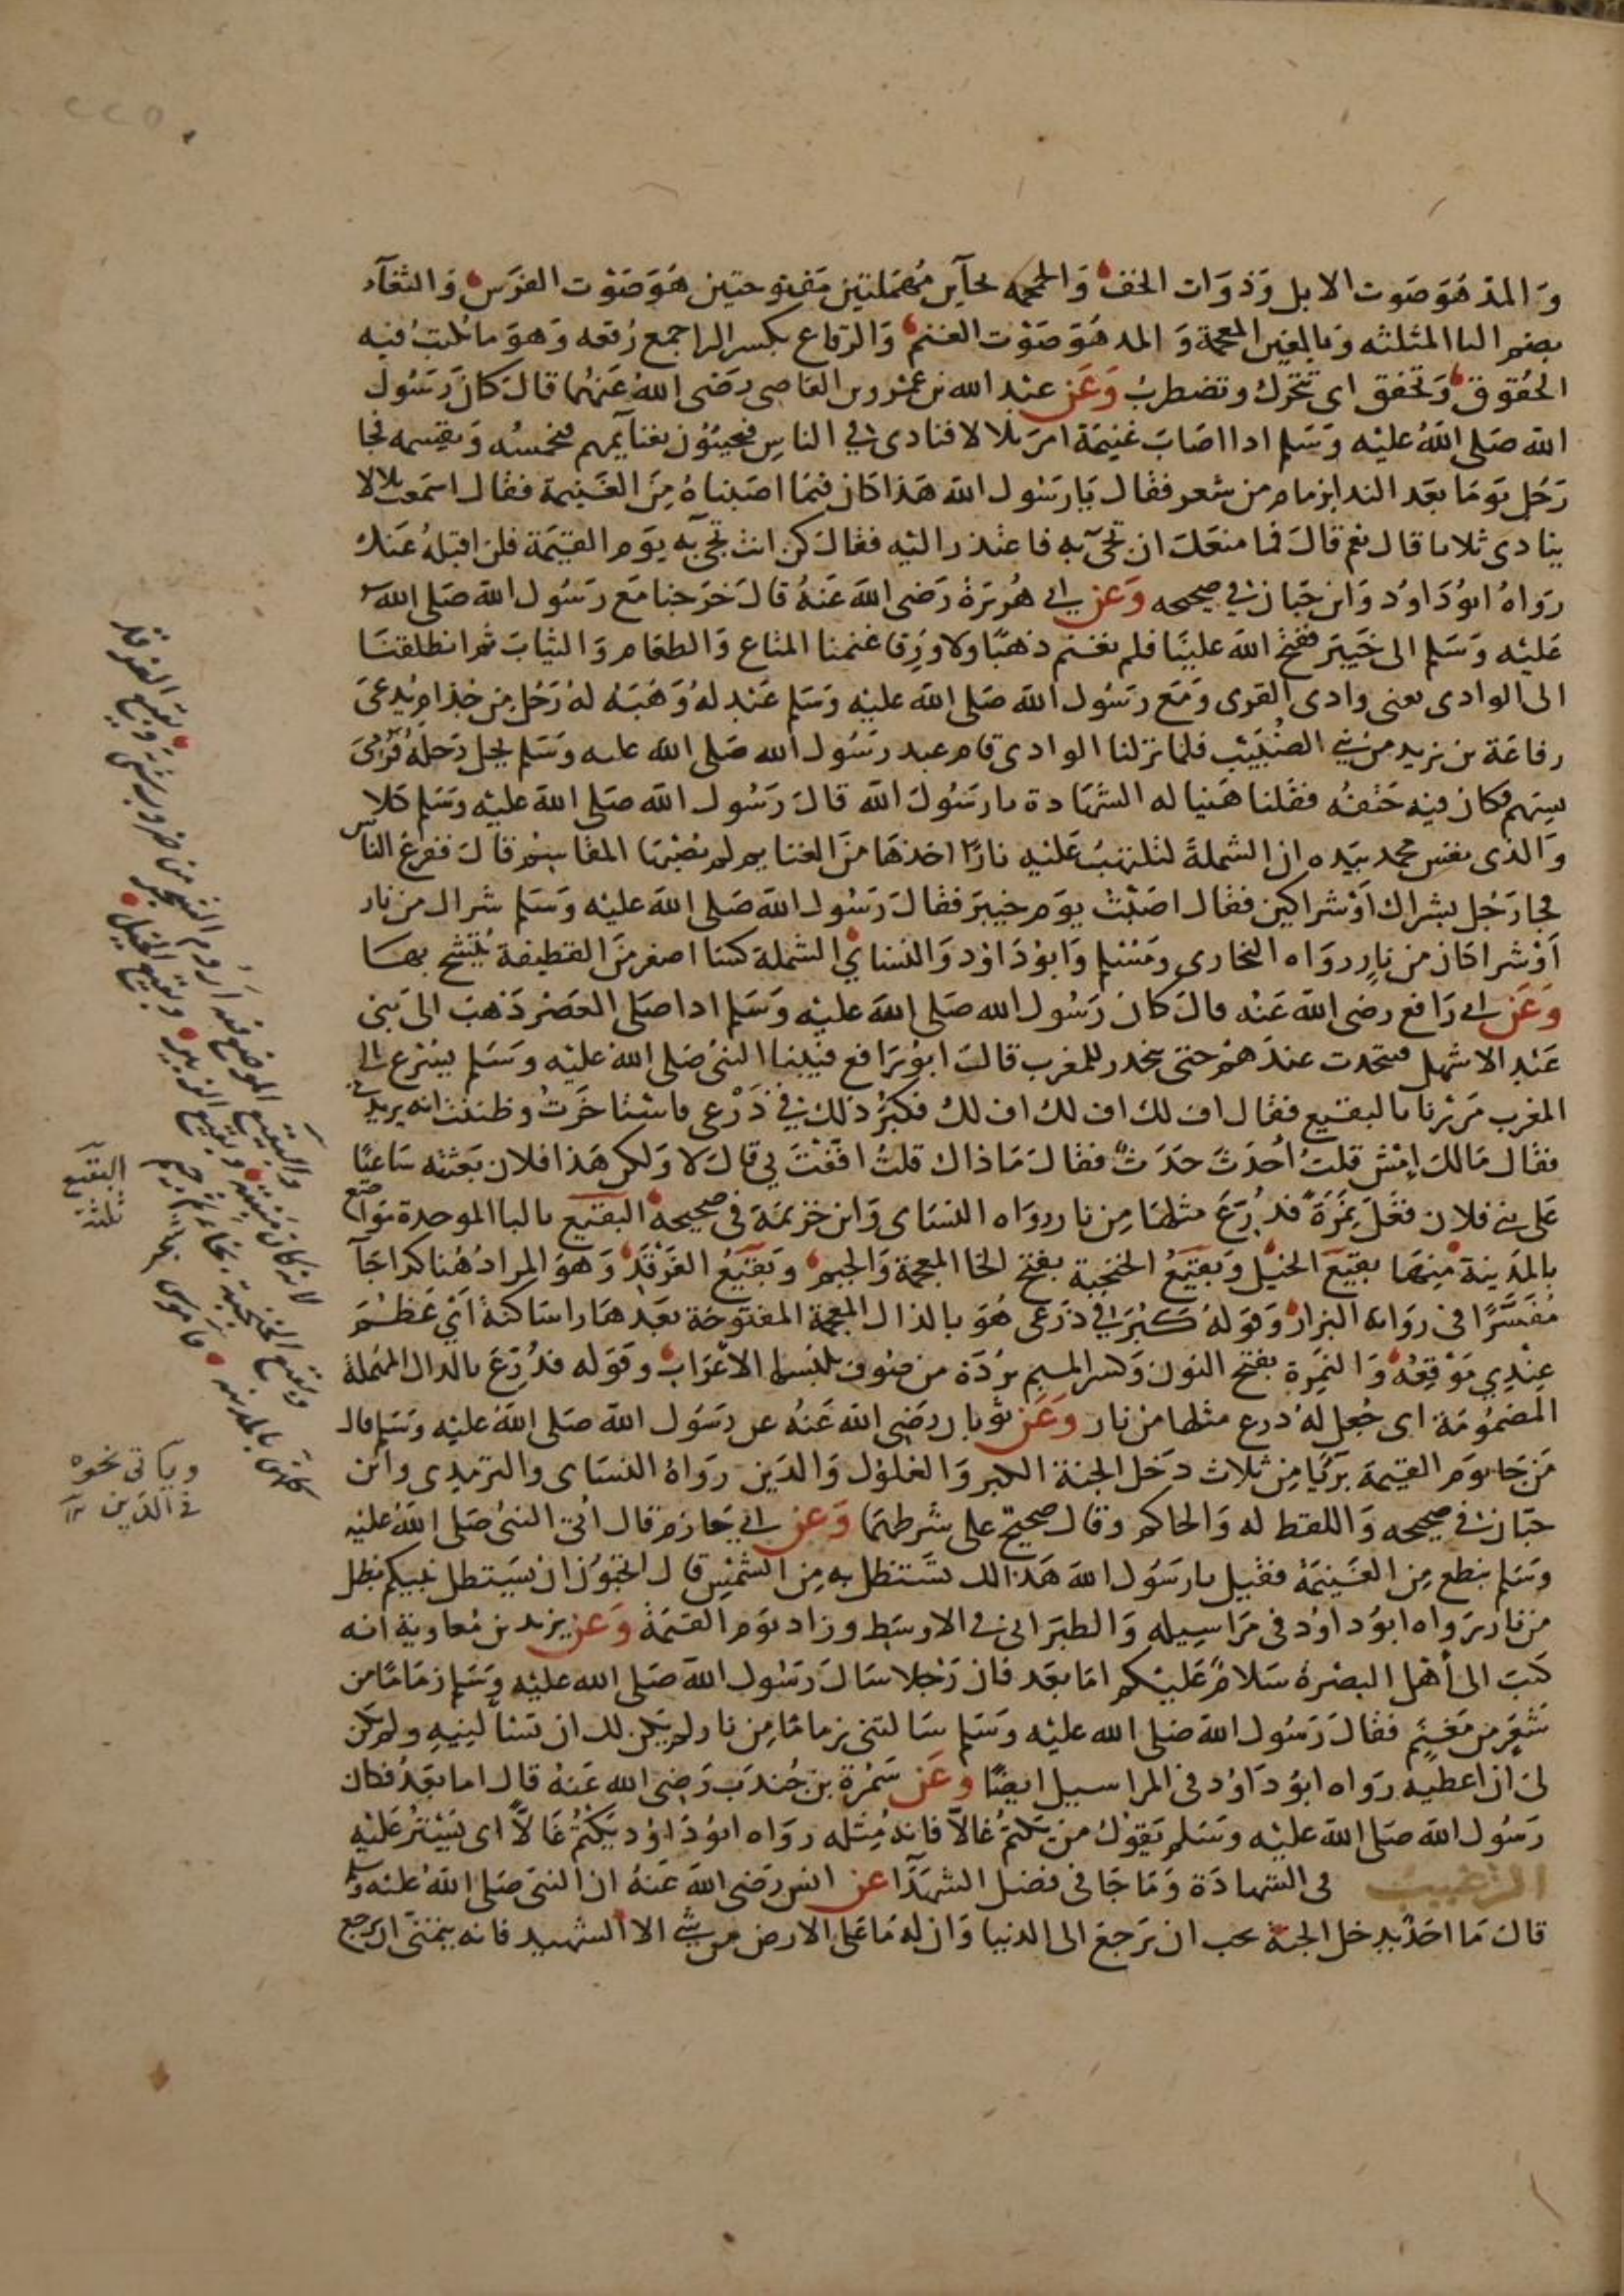 ٢٢٥
والمد هو صوت الابل وذوات الخف والحمحمه بحاين مهملتين مفتوحتين هو صوت الفرس والثغآء
بضم الثا المثلثه وبالغين المعجمة والمد هو صوت الغنم والرقاع بكسر الرا جمع رقعه وهو ما تكتب فيه
الحقوق وتخفق اى تتحرك وتضطرب وعن عبد الله بن عمرو بن العاصى رضى الله عنهما قال كان رسول
الله صلى الله عليه وسلم اذا اصاب غنيمة امر بلالا فنادى فى الناس فيجيئون بغنايمهم فيخمسه ويقسمه فجا
رجل يوما بعد الندا بزمام من شعر فقال يا رسول الله هذا كان فيما اصبناه من الغنيمة فقال اسمعت بلالا
ينادى ثلاثا قال نعم قال فما منعك ان تجىء به فاعتذر اليه فقال كن انت تجىء به يوم القيمة فلن اقبله عنك
رواه ابو داود وابن حبان فى صحيحه وعن ابى هريرة رضى الله عنه قال خرجنا مع رسول الله صلى الله
عليه وسلم الى خيبر ففتح الله علينا فلم نغنم ذهبا ولا ورقا غنمنا المتاع والطعام والثياب ثم انطلقنا
الى الوادى يعنى وادى القرى ومع رسول الله صلى الله عليه وسلم عبد له وهبه له رجل من جذام يدعى
رفاعة بن يزيد من بنى الضبيب فلما نزلنا الوادى قام عبد رسول الله صلى الله عليه وسلم يحل رحله فرمى
بسهم فكان فيه حتفه فقلنا هنيا له الشهادة يا رسول الله قال رسول الله صلى الله عليه وسلم كلا
والذى نفس محمد بيده ان الشملة لتلتهب عليه نارا اخذها من الغنايم لم تصبها المقاسم قال ففزع الناس
فجا رجل بشراك او شراكين فقال اصبت يوم خيبر فقال رسول الله صلى الله عليه وسلم شراك من نار
او شراكان من نار رواه البخارى ومسلم وابو داود والنساي الشملة كسا اصغر من القطيفة يتشح بها
وعن ابى رافع رضى الله عنه قال كان رسول الله صلى الله عليه وسلم اذا صلى العصر ذهب الى بنى
عبد الاشهل فيتحدث عندهم حتى ينحدر للمغرب قال ابو رافع فبينا النبى صلى الله عليه وسلم يسرع الى
المغرب مررنا بالبقيع فقال اف لك اف لك اف لك فكبر ذلك فى ذرعى فاستاخرت وظننت انه يريدنى
فقال مالك امش قلت احدث حدث فقال ماذاك قلت اففت بى قال لا ولكن هذا فلان بعثته ساعيا
على بنى فلان فغل نمرة فدرع مثلها من نار رواه النساى وابن خزيمة فى صحيحه البقيع بالبا الموحدة مواضع
بالمدينة منها بقيع الخيل وبقيع الخبجبة بفتح الخا المعجمة والجيم وبقيع الغرقد وهو المراد هنا كذا جآ
مفسرا فى رواية البزار وقوله كبر فى ذرعى هو بالذال المعجمة المفتوحة بعدها را ساكنة اى عظم
عندى موقعه والنمرة بفتح النون وكسر الميم بردة من صوف يلبسها الاعراب وقوله فدرع بالدال المهملة
المضمومة اى جعل له درع مثلها من نار وعن ثوبان رضى الله عنه عن رسول الله صلى الله عليه وسلم قال
من جا يوم القيمة بريا من ثلاث دخل الجنة الكبر والغلول والدين رواه النساى والترمذى وابن
حبان فى صحيحه واللفظ له والحاكم وقال صحيح على شرطهما وعن ابى حازم قال اتى النبى صلى الله عليه
وسلم بنطع من الغنيمة فقيل يا رسول الله هذا لك تستظل به من الشمس قال اتحبون ان يستظل نبيكم بظل
من نار رواه ابو داود فى مراسيله والطبرانى فى الاوسط وزاد يوم القيمة وعن يزيد بن معاوية انه
كتب الى أهل البصرة سلام عليكم اما بعد فان رجلا سال رسول الله صلى الله عليه وسلم زماما من
شعر من مغنم فقال رسول الله صلى الله عليه وسلم سالتنى زماما من نار لم يكن لك ان تسالنيه ولم يكن
لى ان اعطيه رواه ابو داود فى المراسيل ايضا وعن سمرة بن جندب رضى الله عنه قال اما بعد فكان
رسول الله صلى الله عليه وسلم يقول من يكتم غالا فانه مثله رواه ابو داود يكتم غالا اى يستر عليه
الترغيب فى الشهادة وما جا فى فضل الشهدآ عن انس رضى الله عنه ان النبى صلى الله عليه وسلم
قال ما احد يدخل الجنة يحب ان يرجع الى الدنيا وان له ما على الارض من شى الا الشهيد فانه يتمنى ان يرجع
البقيع
ثلثة
والبقيع الموضع فيه اروم الشجر من ضروب شتى وبقيع الغرقد
لانه كان منبته وبقيع الزبير وبقيع الخيل
وبقيع الخبجبة بخاء ثم جيم
كلهن بالمدينه قاموس
وياتى نحوه
فى الدين